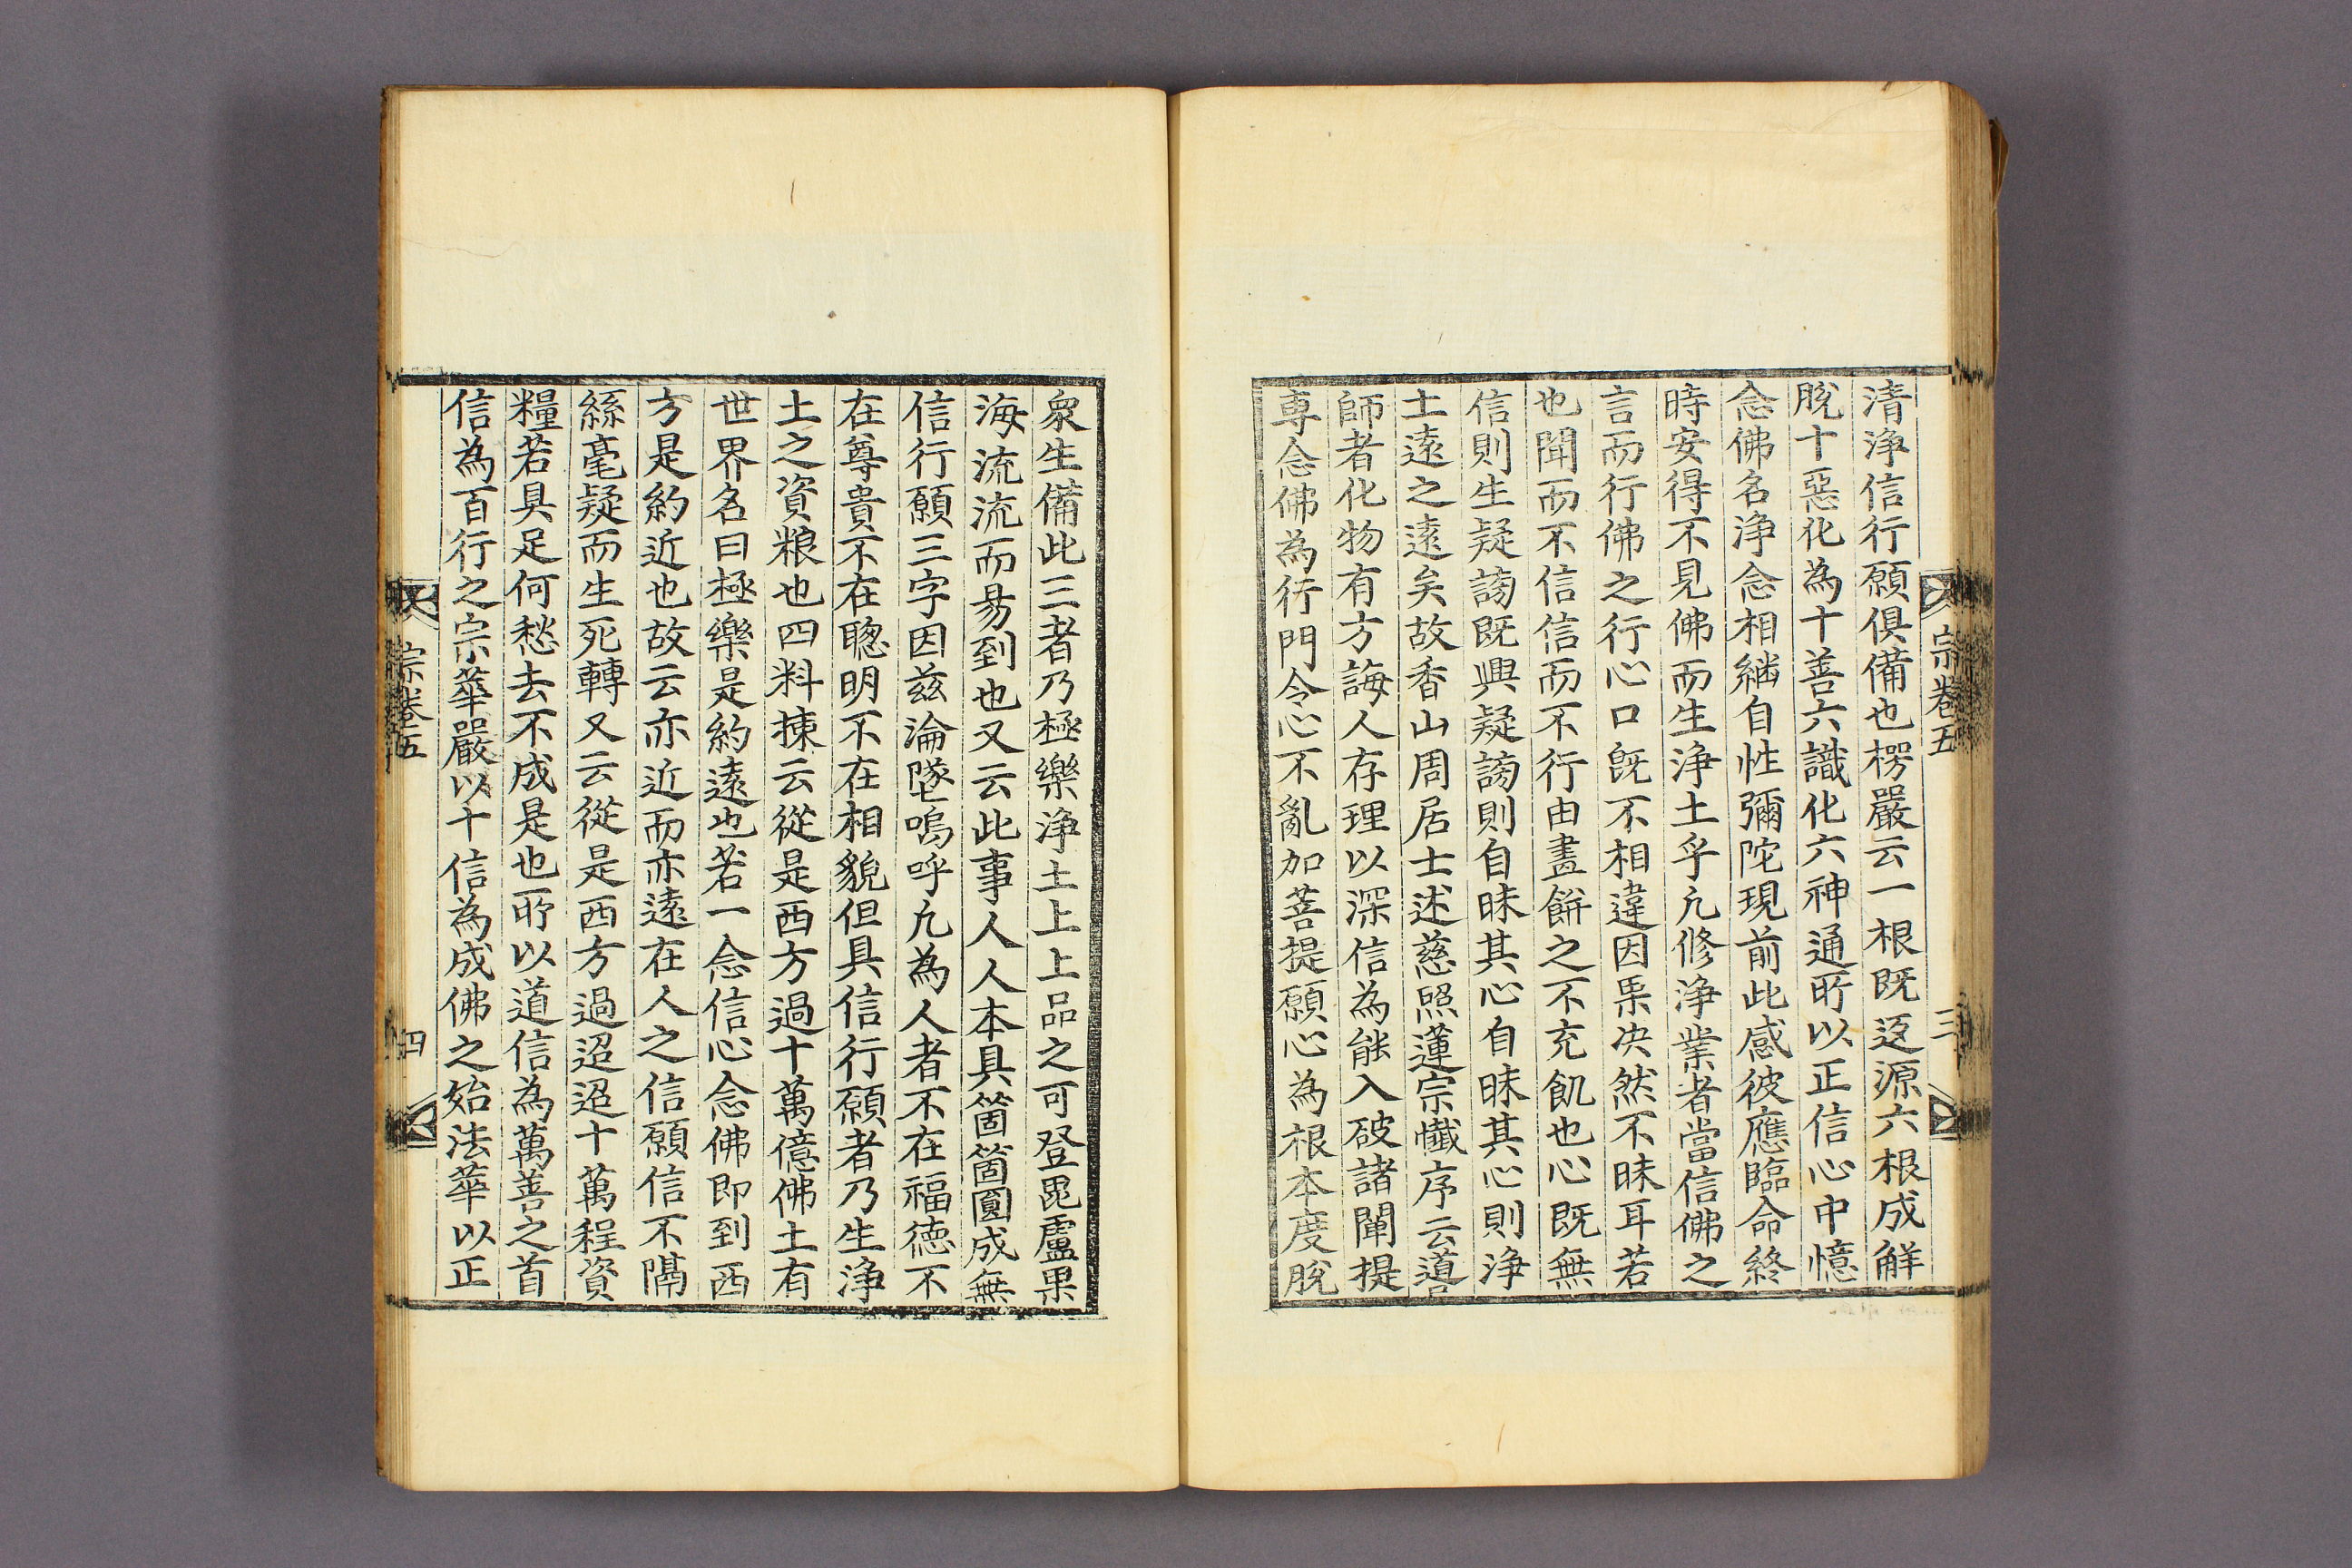 宗卷五
三
清淨信行願俱備也楞嚴云一根既返源六根成觧
脫十惡化為十善六識化六神通所以正信心中憶
念佛名淨念相繼自性彌陀現前此感彼應臨命終
時安得不見佛而生淨土乎凢修淨業者當信佛之
言而行佛之行心口旣不相違因果决然不昧耳若
也聞而不信信而不行由畫餅之不充飢也心既無
信則生疑謗既興疑謗則自昧其心自昧其心則淨
土遠之遠矣故香山周居士述慈照蓮宗懴序云導
師者化物有方誨人存理以深信為能入破諸闡提
專念佛為行門令心不亂加菩提願心為根本度脫
衆生備此三者乃極樂淨土上上品之可登毘盧果
海流流而易到也又云此事人人本具箇箇圓成無
信行願三字因兹淪墜嗚呼凢為人者不在福德不
在尊貴不在聰明不在相貌但具信行願者乃生淨
土之資粮也四料揀云從是西方過十萬億佛土有
世界名曰極樂是約遠也若一念信心念佛即到西
方是約近也故云亦近而亦遠在人之信願信不隔
絲毫疑而生死轉又云從是西方過迢迢十萬程資
糧若具足何愁去不成是也所以道信為萬善之首
信為百行之宗華嚴以十信為成佛之始法華以正
宗卷五
四